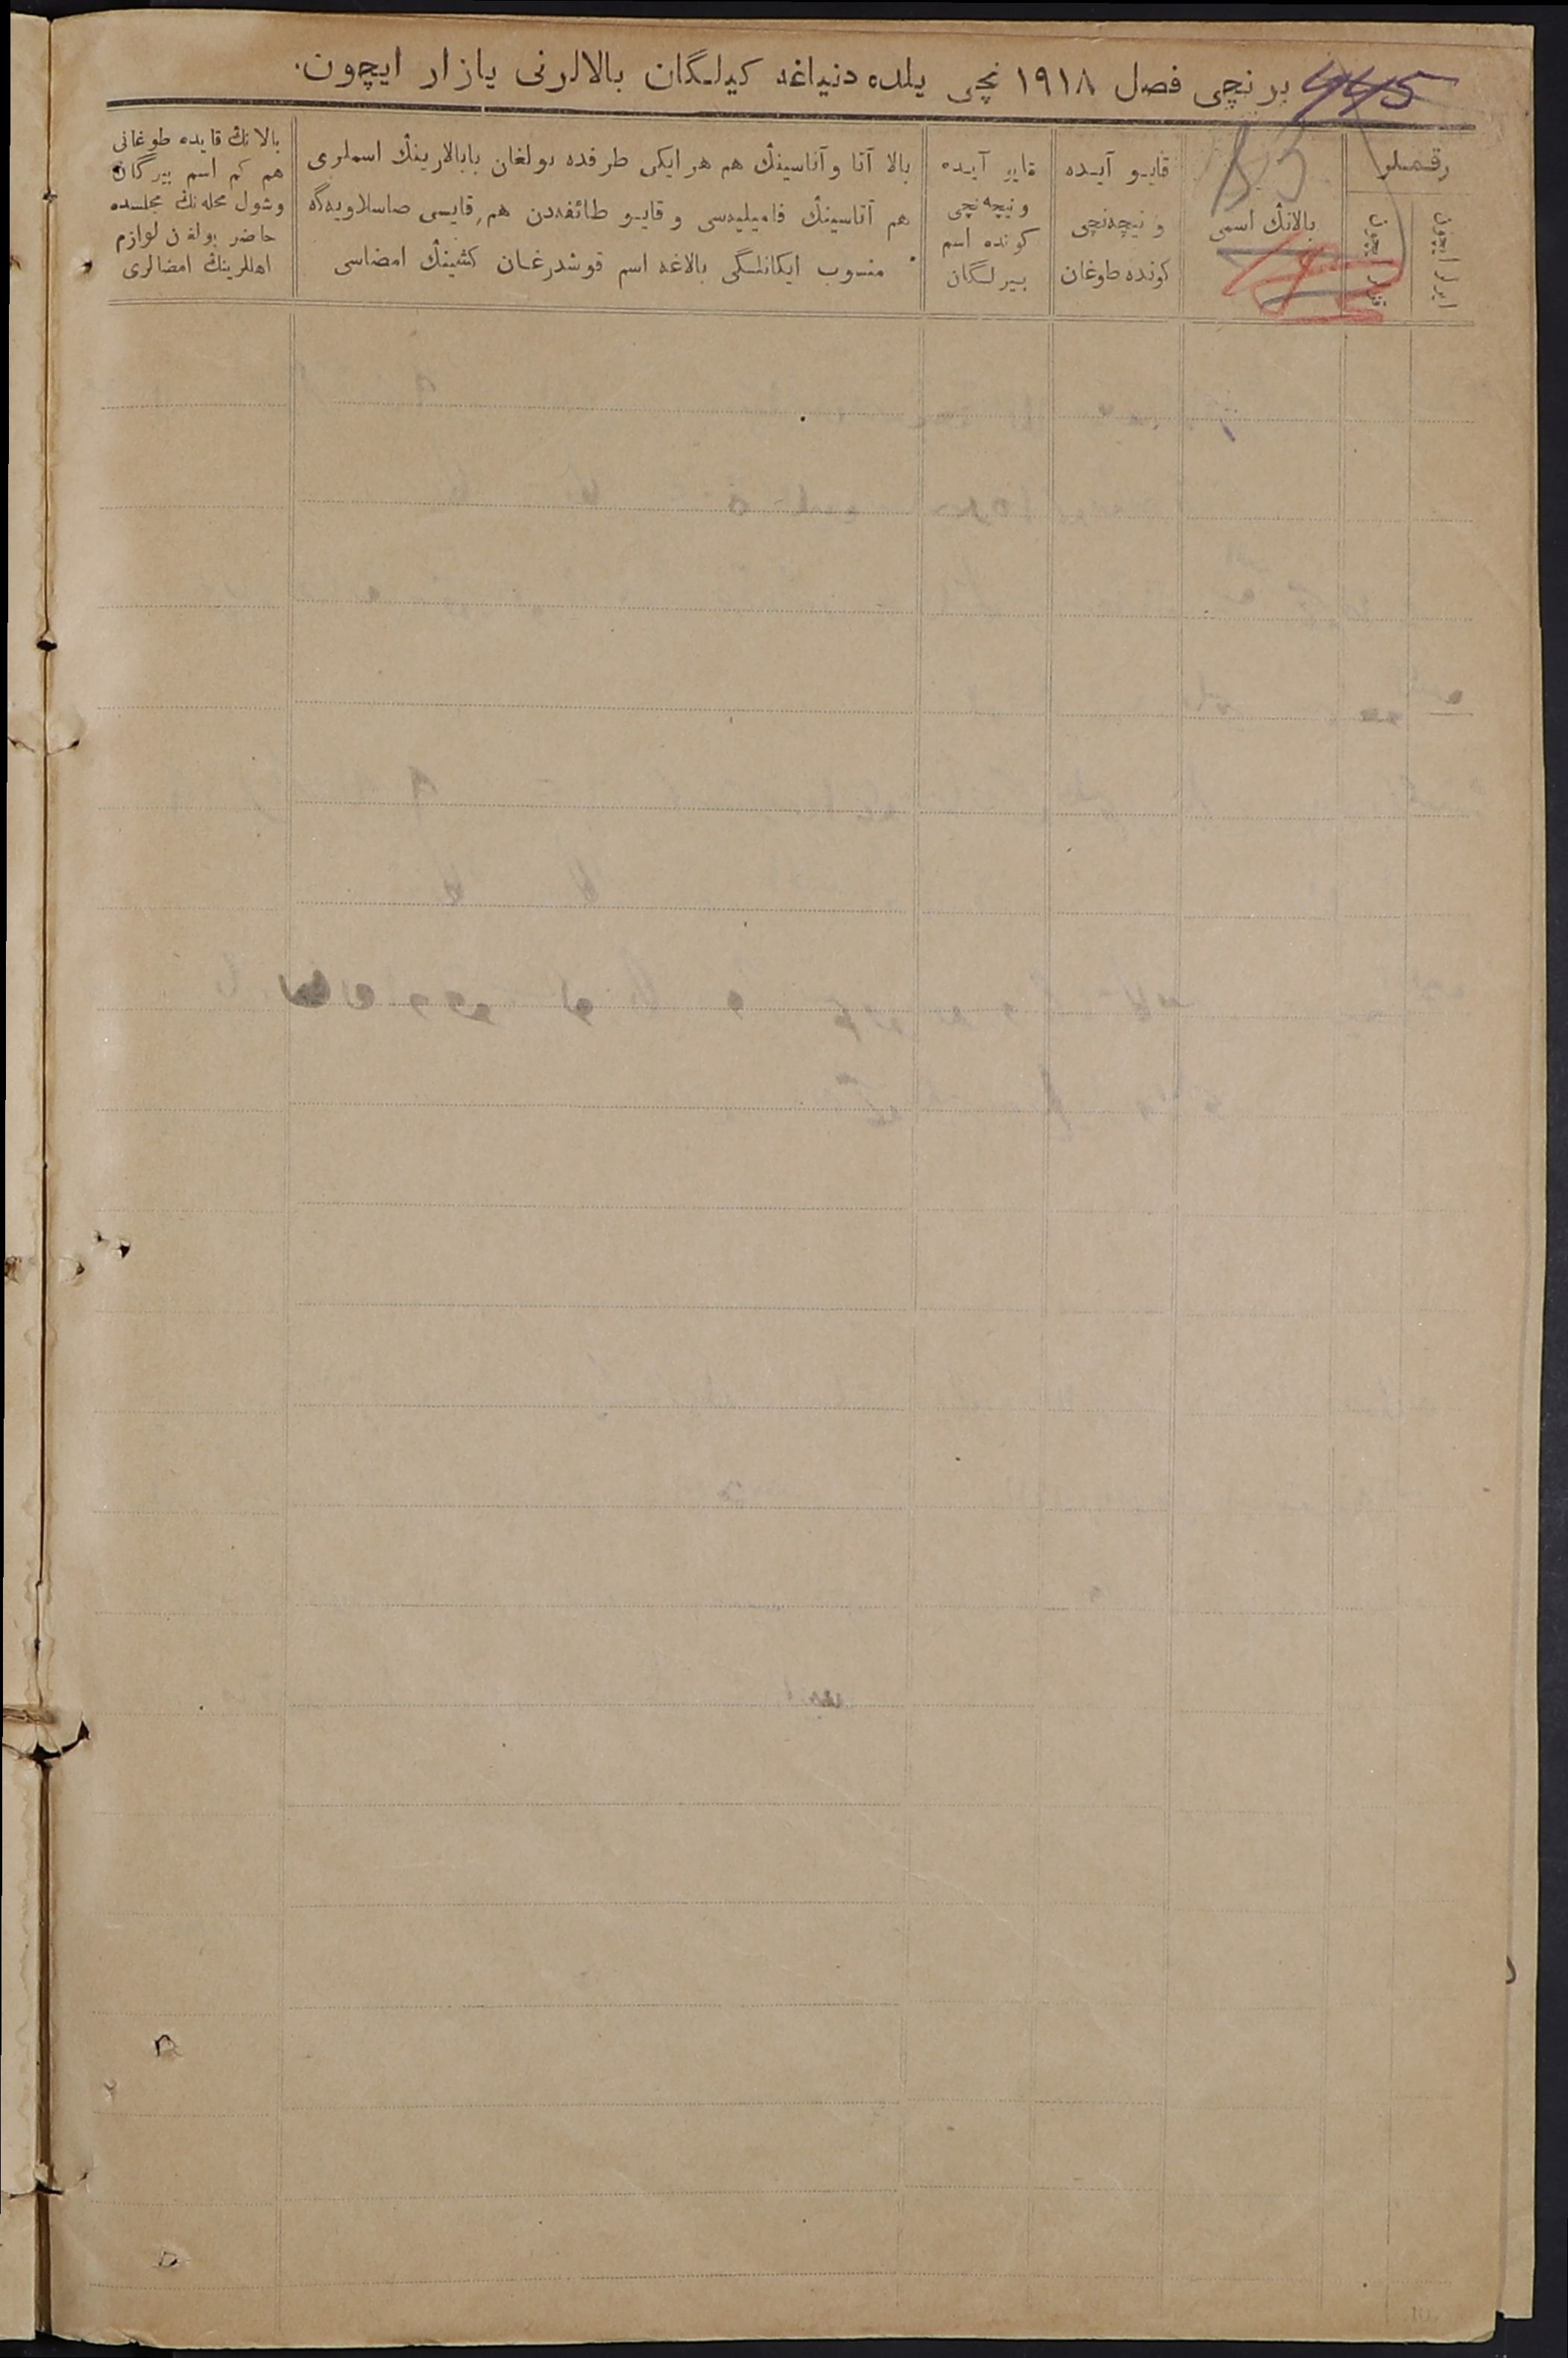 برنچی فصل ١٩١٨ نچی یلده دنیاغه کیلـگان بالالرنی یازار ایچون.
445
85
رقملر
ایرلر ایچون
قزلر ایچون
بالانڭ اسمی
قایـو آیـده
و نیچه‌نچی
کونده طوغان
قایو آیـده
و نیچه نچی
کونده اسم
بیرلـگان
بالا آتا و آناسینڭ هم هر ایکی طرفده بولغان بابالارینڭ اسملری
هم آتاسینڭ فامیلیه‌سی و قایـو طائفه‌دن هم قایسی صاسلاویه‌گه
منسوب ایکانلـگی بالاغه اسم قوشدرغـان کشینڭ امضاسی
بالانڭ قایده طوغانی
هم کم اسم بیرگان
و شول محله نڭ مجلسده
حاضر بولغن لوازم
اهللرینڭ امضالری